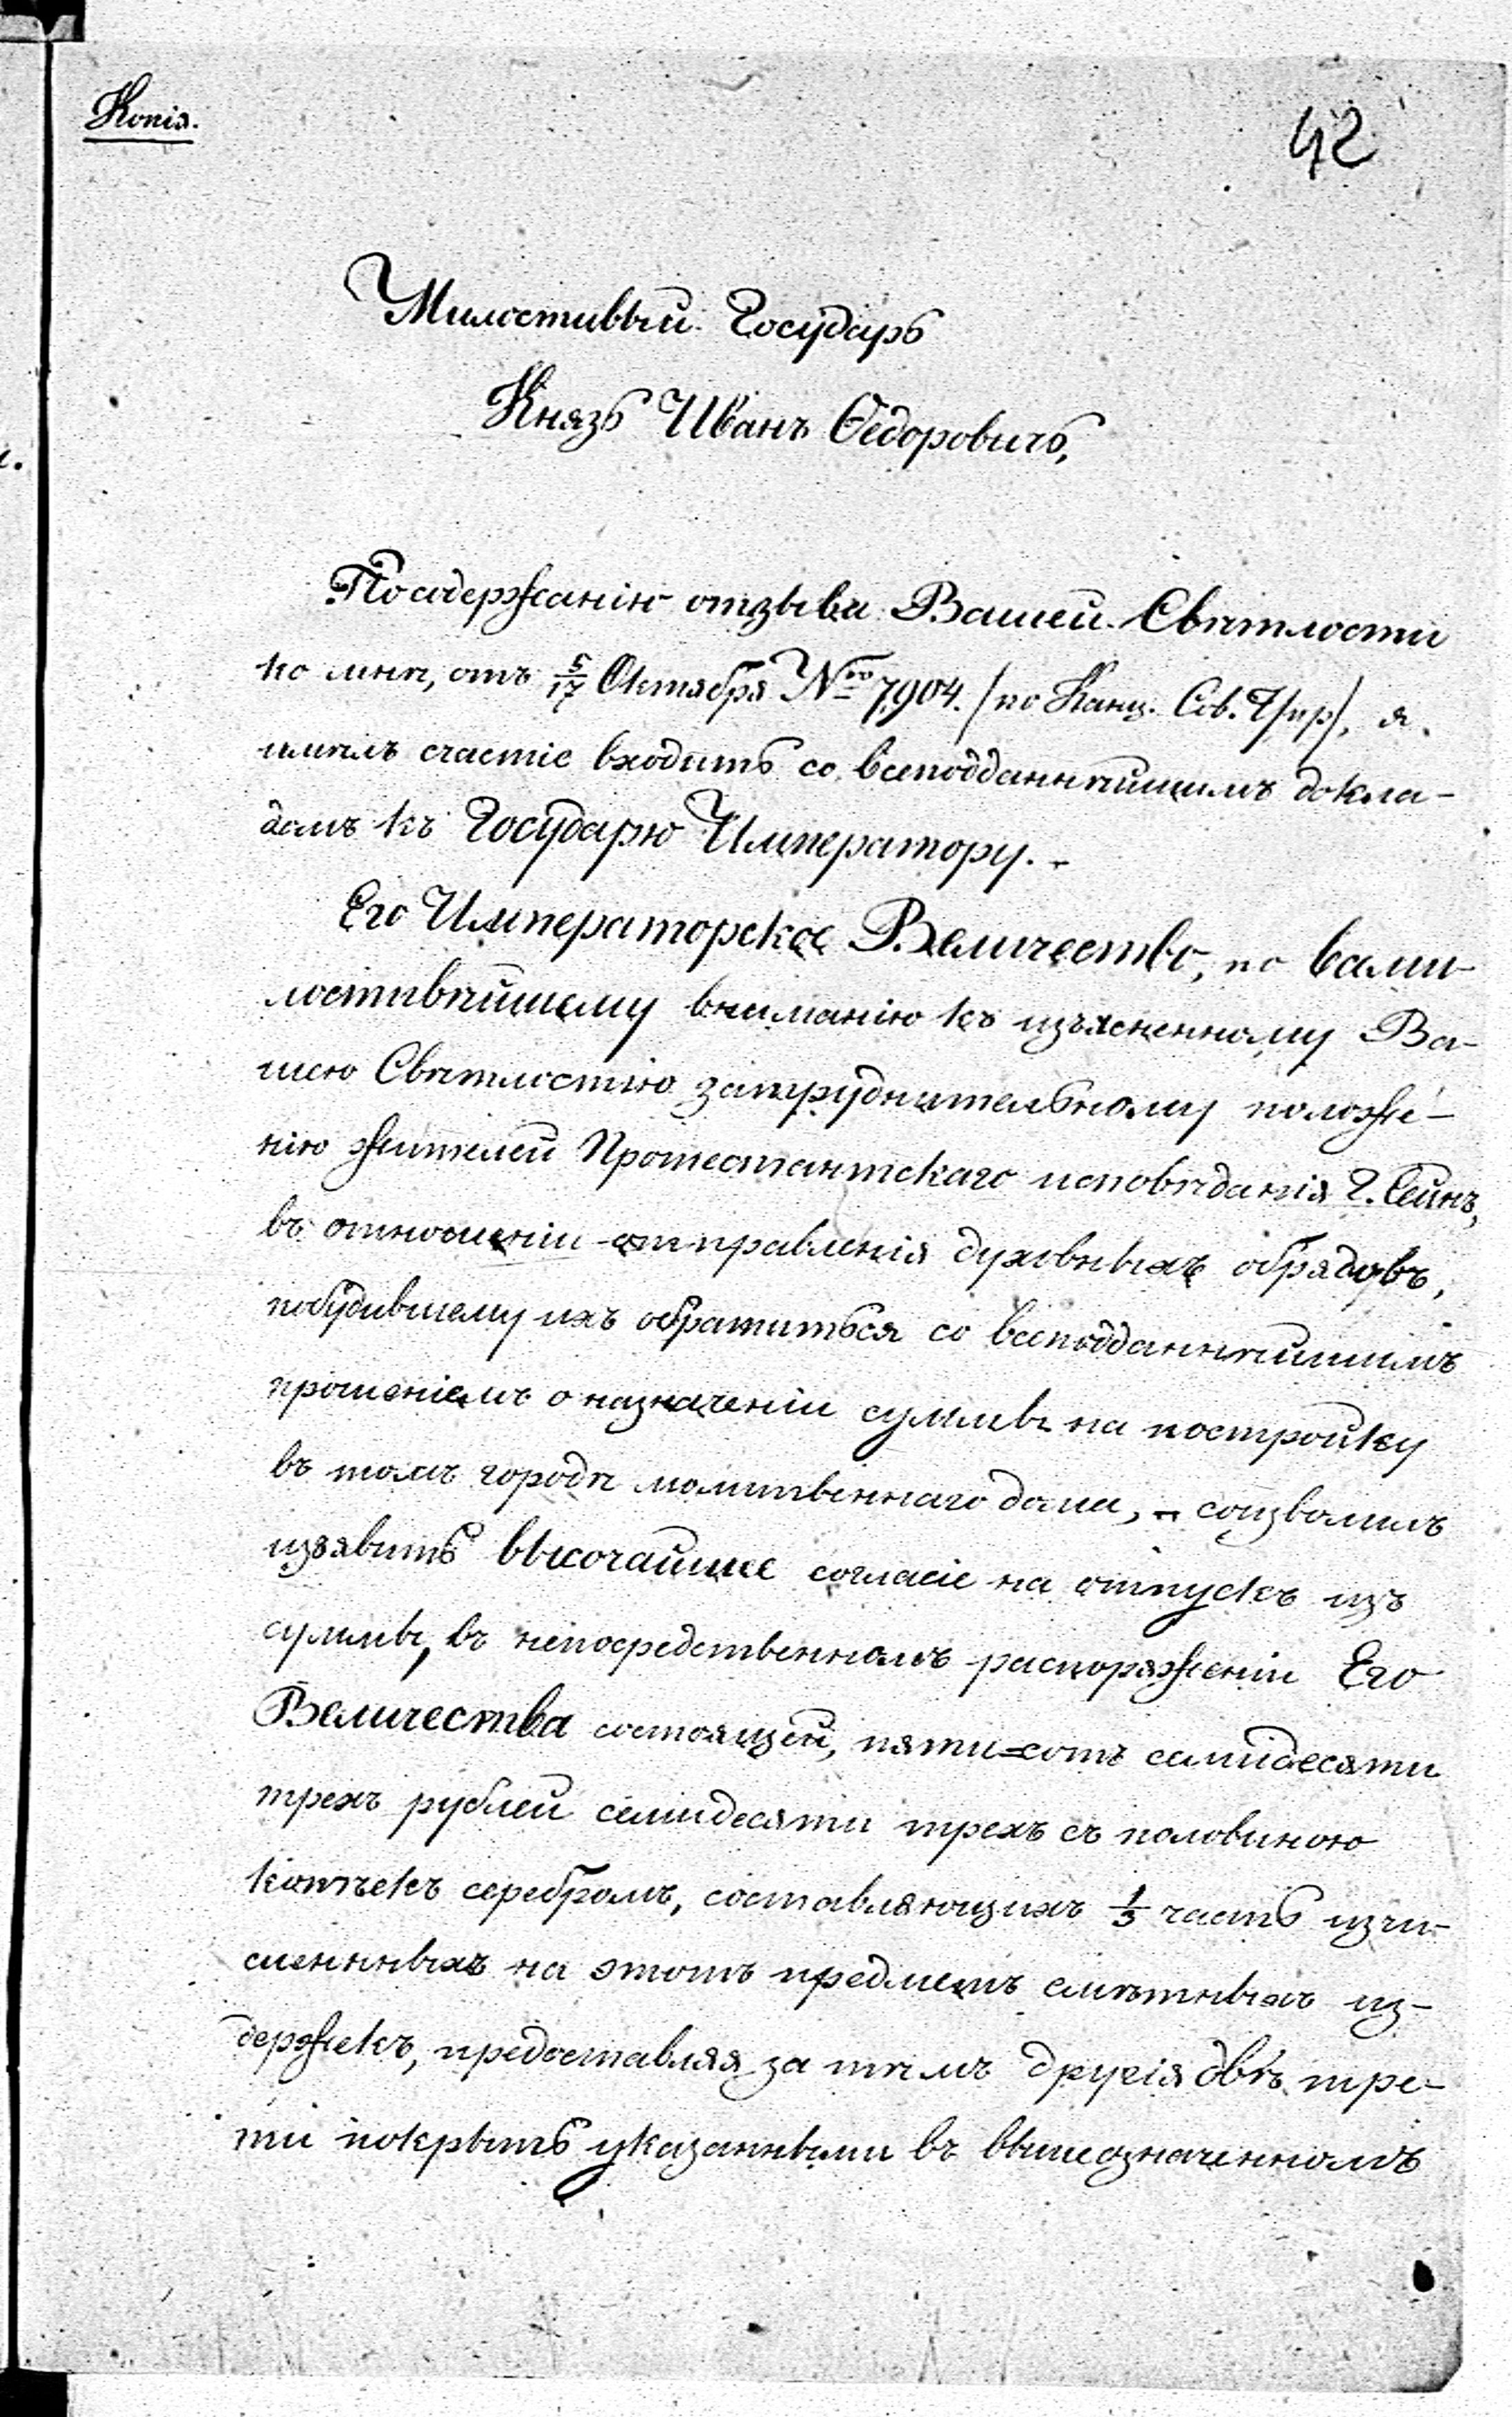 Копія.
42
Милостивый Государь
Князь Иванъ Ѳедоровичъ,
По содержанію отзыва Вашей Свѣтлости
ко мнѣ, отъ 5/17 Октября № 7,904. /по Канц. Сов. Упр/, я
имѣлъ счастіе входить со всеподданнѣйшимъ докла-
домъ къ Государю Императору. -
Его Императорское Величество, по всеми-
лостивѣйшему вниманію къ изъясненному Ва-
шею Свѣтлостію затруднительному положе-
нію жителей Протестантскаго исповѣданія г. Сейнъ,
въ отношеніи отправленія духовныхъ обрядовъ,
побудившему ихъ обратиться со всеподданнѣйшимъ
прошеніемъ о назначеніи суммы на постройку
въ томъ городѣ молитвеннаго дома, - соизволилъ
изъявить высочайшее согласіе на отпускъ изъ
суммы, въ непосредственномъ распоряженіи Его
Величества состоящей, пяти=сотъ семидесяти
трехъ рублей семидесяти трехъ съ половиною
копѣекъ серебромъ, составляющихъ 1/3 часть исчи-
сленныхъ на этотъ предметъ смѣтныхъ из-
держекъ, предоставляя за тѣмъ другія двѣ тре-
ти покрыть указанными въ вышеозначенномъ